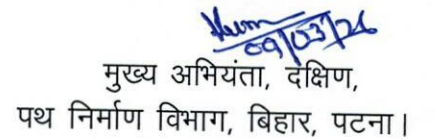 09/03/26
मुख्य अभियंता, दक्षिण,
पथ निर्माण विभाग, बिहार, पटना।